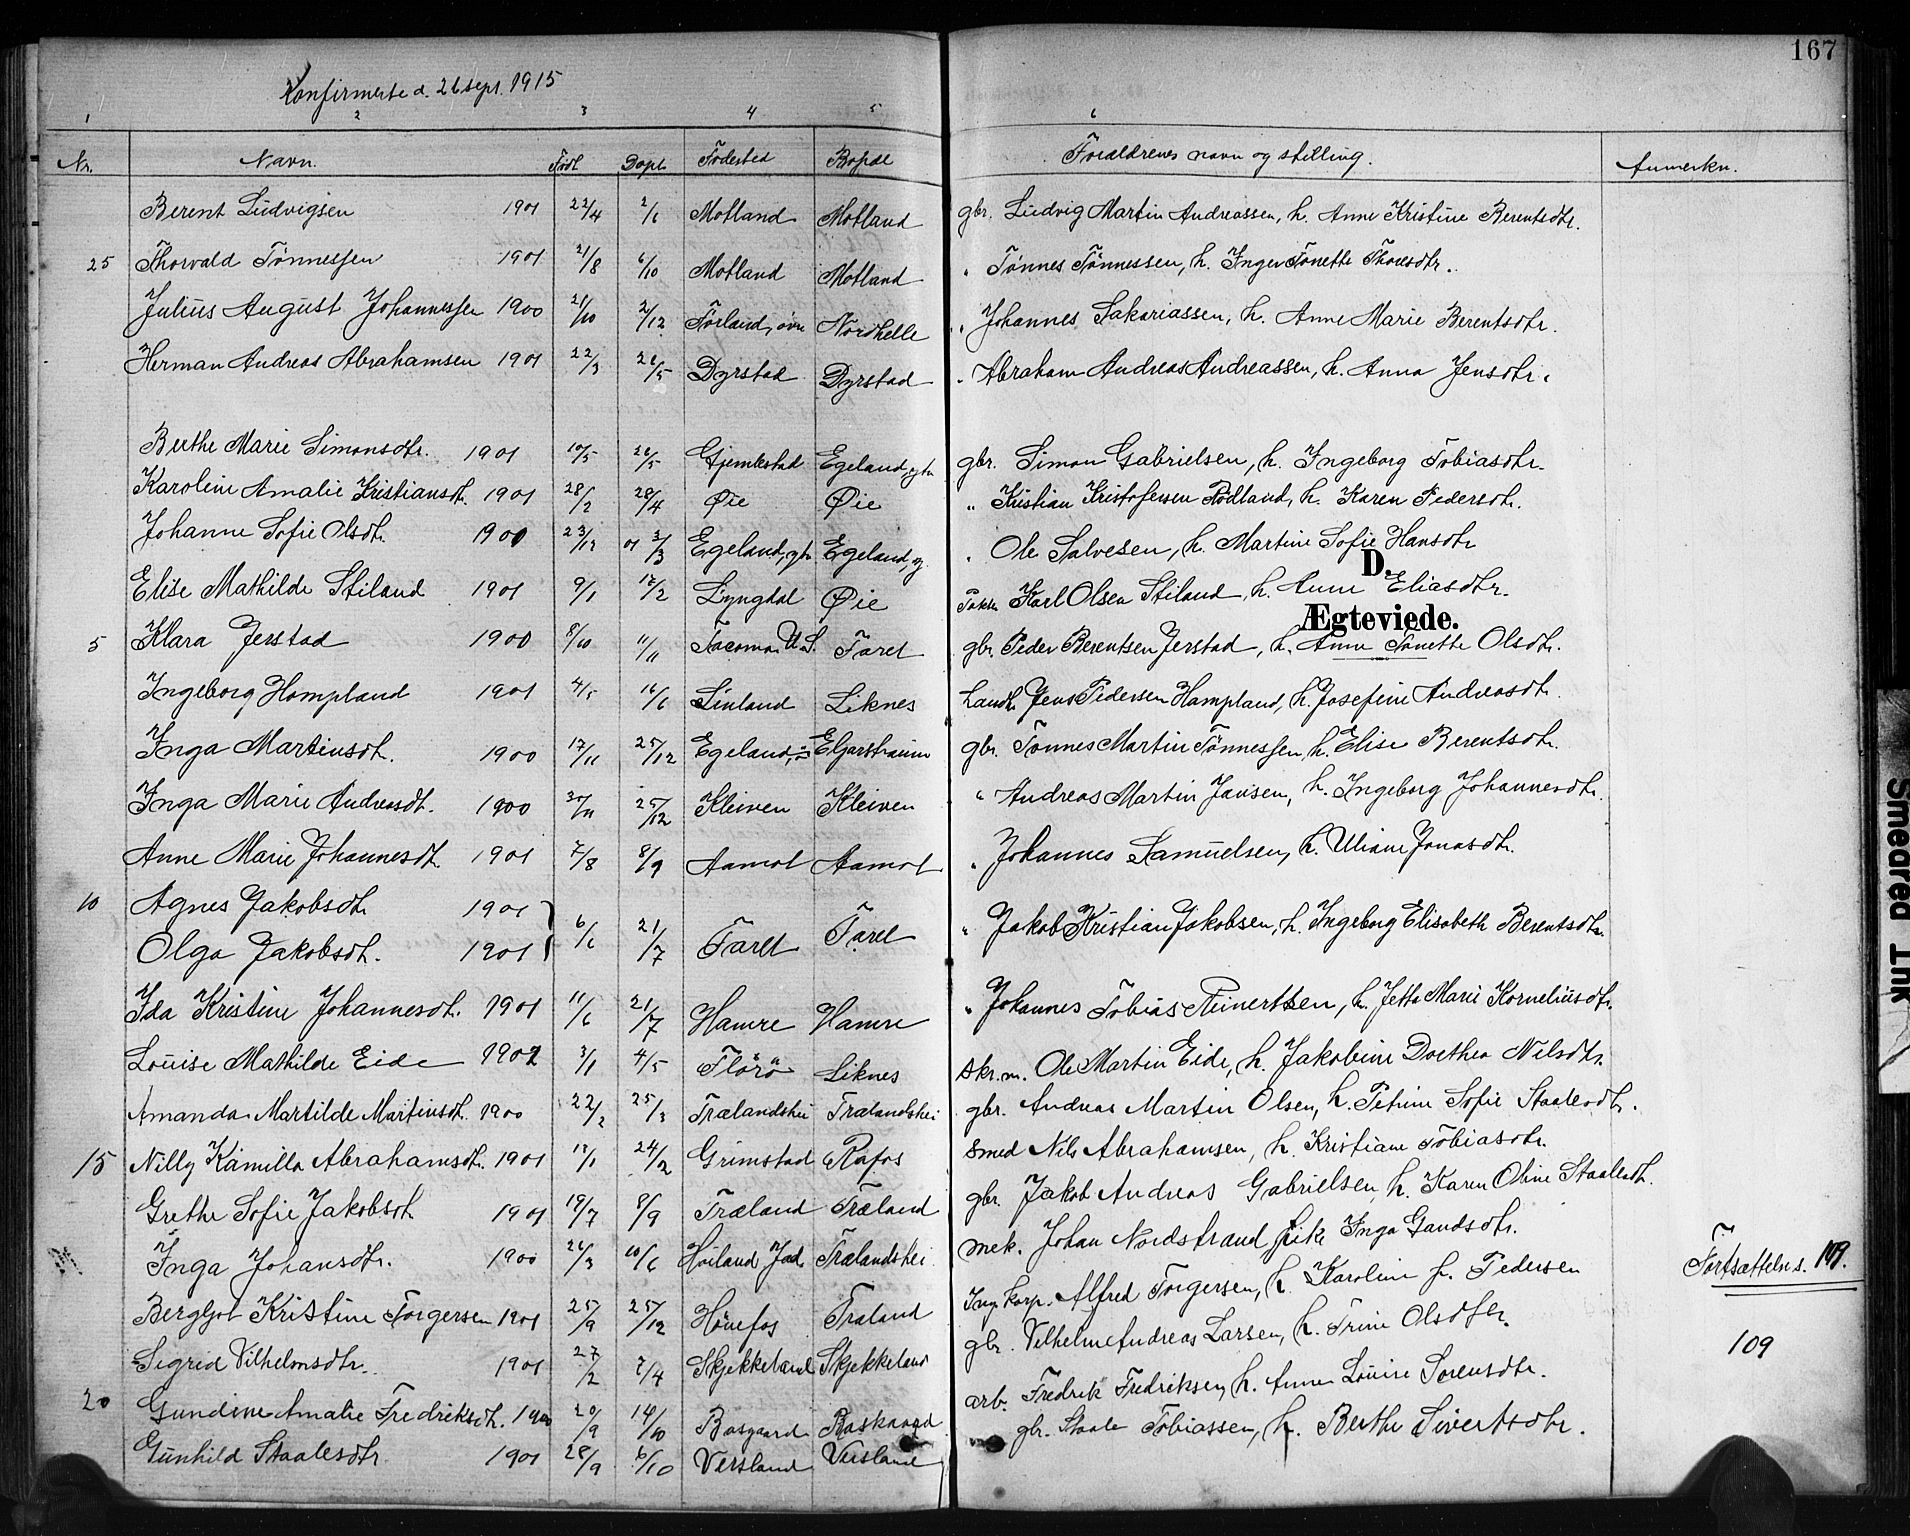 167
Konfirmerte d. 26 sept. 1915
1 2 3 4 5 6
Nr. Navn. Født Døpt Fødested Bopæl Forældrenes navn og stilling. Anmerkn.
Berent Ludvigsen 1901 22/4 2/6 Motland Motland gbr. Ludvig Martin Andreassen, h. Anne Kristine Berentsdtr.
25 Thorvald Tønnessen 1901 21/8 6/10 Motland Motland " Tønnes Tønnessen, h. Inger Tonette Thoresdtr.
Julius August Johannessen 1900 21/10 2/12 Førland, øvre Nordhelle " Johannes Sakariassen, h. Anne Marie Berentsdtr.
Herman Andreas Abrahamsen 1901 22/3 26/5 Dyrstad Dyrstad " Abraham Andreas Andreassen, h. Anna Jensdtr.
Berthe Marie Simonsdtr. 1901 10/5 26/5 Gjemlestad Egeland, ytr. gbr. Simon Gabrielsen, h. Ingeborg Tobiasdtr.
Karoline Amalie Kristiansdt. 1901 28/2 28/4 Øie Øie " Kristian Kristofersen Rødland, h. Karen Pedersdtr.
Johanne Sofie Olsdtr. 1900 23/12 01 3/3 Egeland, ytr. Egeland, y. " Ole Salvesen, h. Martine Sofie Hansdtr
D.
Elise Mathilde Stiland 1901 9/1 17/2 Lyngdal Øie Karl Olsen Stiland, h. Anne Eliasdtr.
Ægteviede.
5 Klara Jerstad 1900 8/10 11/11 Tacoma U.S. Faret gbr. Peder Berentsen Jerstad, h. Anne Tonette Olsdtr.
Ingeborg Hompland 1901 4/5 16/6 Linland Liknes Landh. Jens Pedersen Hompland, h. Josefine Andreasdtr.
Inga Martinsdt. 1900 17/11 25/12 Egeland, Elgarstraum gbr. Tønnes Martin Tønnessen, h. Elise Berentsdtr.
Inga Marie Andreasdt. 1900 30/11 25/12 Kleiven Kleiven " Andreas Martin Jansen, h. Ingeborg Johannesdtr.
Anne Marie Johannesdt. 1901 7/8 8/9 Aamot Aamot " Johannes Samuelsen, h. Uliane Jonasdtr.
10 Agnes Jakobsdtr 1901 6/6 21/7 Faret Faret " Jakob Kristian Jakobsen, h. Ingeborg Elisabeth Berentsdtr.
Olga Jakobsdt. 1901
Ida Kristine Johannesdt. 1901 11/6 21/7 Hamre Hamre " Johannes Tobias Reinertsen, h. Jette Marie Korneliusdtr.
Louise Mathilde Eide 1902 3/1 4/5 Florö Liknes skr.m. Ole Martin Eide, h. Jakobine Dorthea Nilsdtr.
Amanda Martilde Martinsdt. 1900 22/2 25/3 Trælandshei Trælandshei gbr. Andreas Martin Olsen, h. Petrine Sofie Staalesdtr.
15 Nilly Kamilla Abrahamsdt. 1901 17/1 24/2 Grimstad Rafos smed Nils Abrahamsen, h. Kristiane Tobiasdtr.
Grethe Sofie Jakobsdt. 1901 19/7 8/9 Træland Træland gbr. Jakob Andreas Gabrielsen, h. Karen Oline Staalesdt.
Inga Johansdtr. 1900 26/3 10/6 Høiland Jæd. Trælandshei mek. Johan Nordstrand pike Inga Gaudsdtr.
Fortsættelse s. 109.
Bergljot Kristine Torgersen 1901 25/9 25/12 Hønefos Træland Alfred Torgersen, h. Karoline f. Pedersen
Sigrid Vilhelmsdtr. 1901 27/2 7/4 Skjekkeland Skjekkeland gbr. Vilhelm Andreas Larsen, h. Trine Olsdtr.
109
20 Gundine Amalie Fredriksdt. 1900 20/9 14/10 Bosgaard arb. Fredrik Fredriksen, h. Anne Louise Sorensdtr.
Gunhild Staalesdtr. 1901 28/9 6/10 Versland Versland gbr. Staale Tobiassen, h. Berthe Sivertsdtr.
Smeared Ink